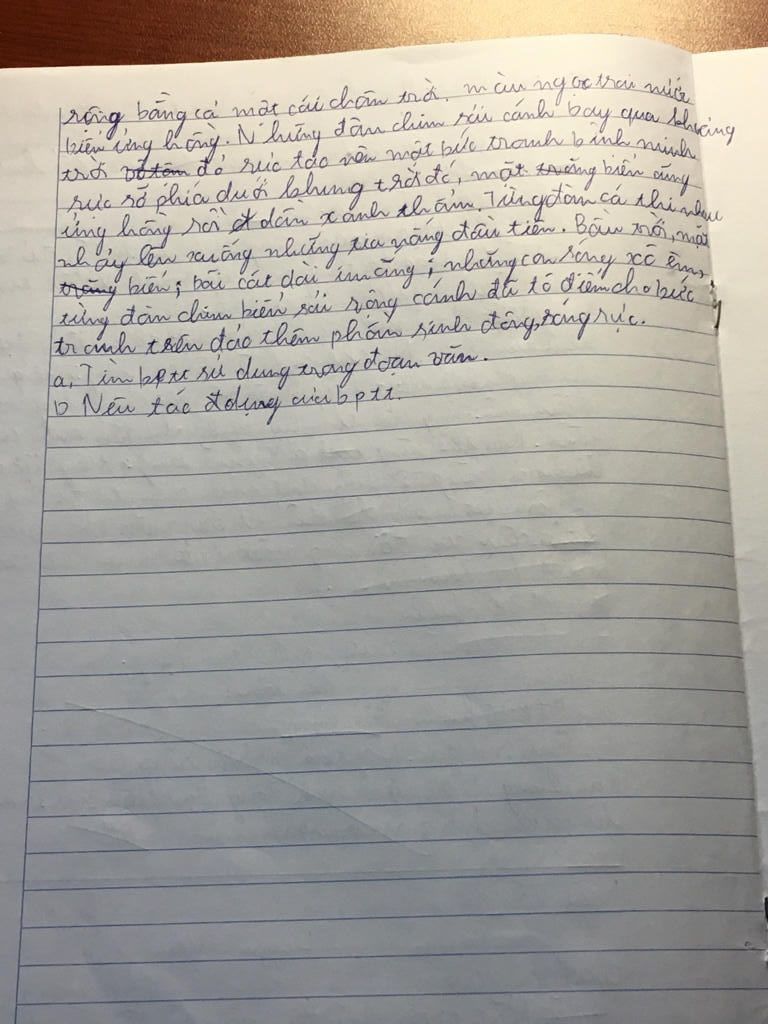 rộng bằng cả một cái chân trời, màu ngọc trai nước
biển ửng hồng. Những đàn chim sải cánh bay qua khoảng
trời đỏ rực tạo nên một bức tranh bình minh
rực rỡ phía dưới khung trời đó, mặt biển cũng
ửng hồng rồi dần xanh thẳm. Từng đàn cá thi nhau
nhảy lên xuống những tia nắng đầu tiên. Bầu trời, mặt
biển; bãi cát dài im ắng; những con sóng xô êm,
từng đàn chim biển sải rộng cánh đã tô điểm cho bức
tranh trên đảo thêm phần sinh động, sáng rực.
a, Tìm bptt sử dụng trong đoạn văn.
b Nêu tác dụng của bptt.